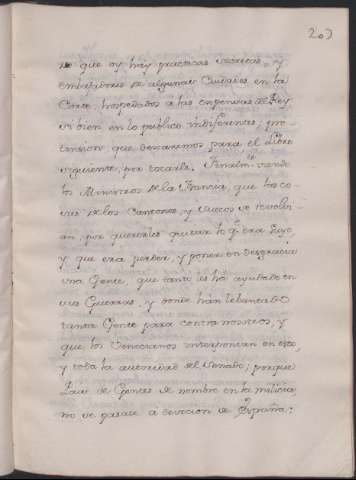 203
de que oy hay practicas secretas, y
embaxadores de algunas Ciudades en la
Corte hospedados a las expensas del Rey
si bien en lo publico indiferentes; pre-
tension que dexaremos para el Libro
siguiente, por tocarle. Finalmte viendo
los Ministros de la Francia, que las co-
sas de los Cantones, y suecos se
an, por quererles quitar lo q̃ era suyo,
y que era perder, y poner en desgracia
una Gente, que tanto les há ayudado en
sus Guerras, y donde hán lebantado
tanta Gente para contra nosotros, y
que los Venecianos interponian en esto,
y toda la autoridad del Senado; porque
Pais de Gentes de nombre en la milicia,
no se pasase á devocion de España: